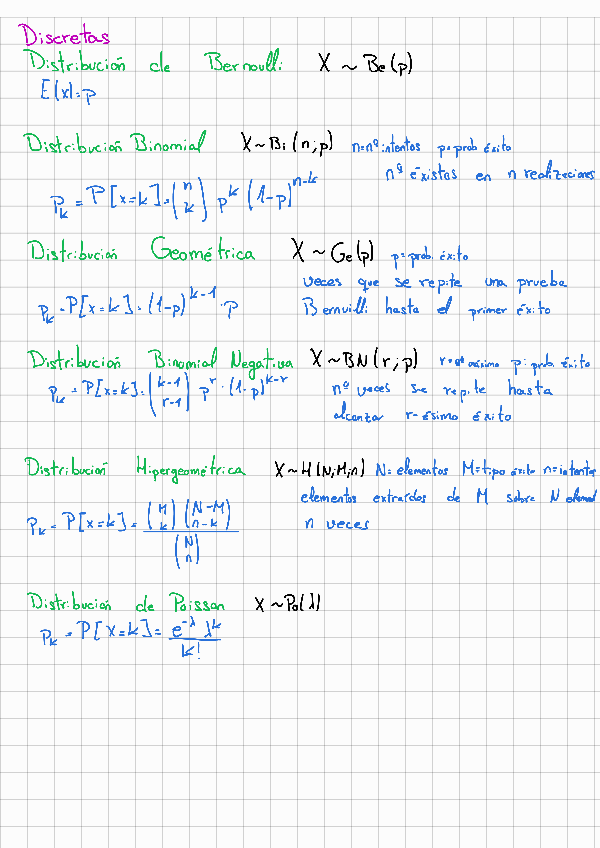 Discretas
Distribución de Bernoulli: X ~ Be(p)
E(x)=p
Distribución Binomial X~Bi(n;p) n=nº intentos p=prob éxito
nº éxistos en n realizaciones
Pk = P[x=k] = (n k) p^k (1-p)^(n-k)
Distribución Geométrica X ~ Ge(p) p=prob. éxito
veces que se repite una prueba
Pk = P[x=k] = (1-p)^(k-1) · p Bernuilli hasta el primer éxito
Distribución Binomial Negativa X ~ BN(r;p) p=prob. éxito
Pk = P[x=k] = (k-1 r-1) p^r · (1-p)^(k-r) nº veces se repite hasta
alcanzar r-ésimo éxito
Distribución Hipergeométrica X~H(N;M;n) N=elementos M=tipo éxito n=intentos
elementos extraídos de M sobre N
Pk = P[x=k] = (M k) (N-M n-k) / (N n) n veces
Distribución de Poisson X ~ Po(λ)
Pk = P[x=k] = e^-λ λ^k / k!